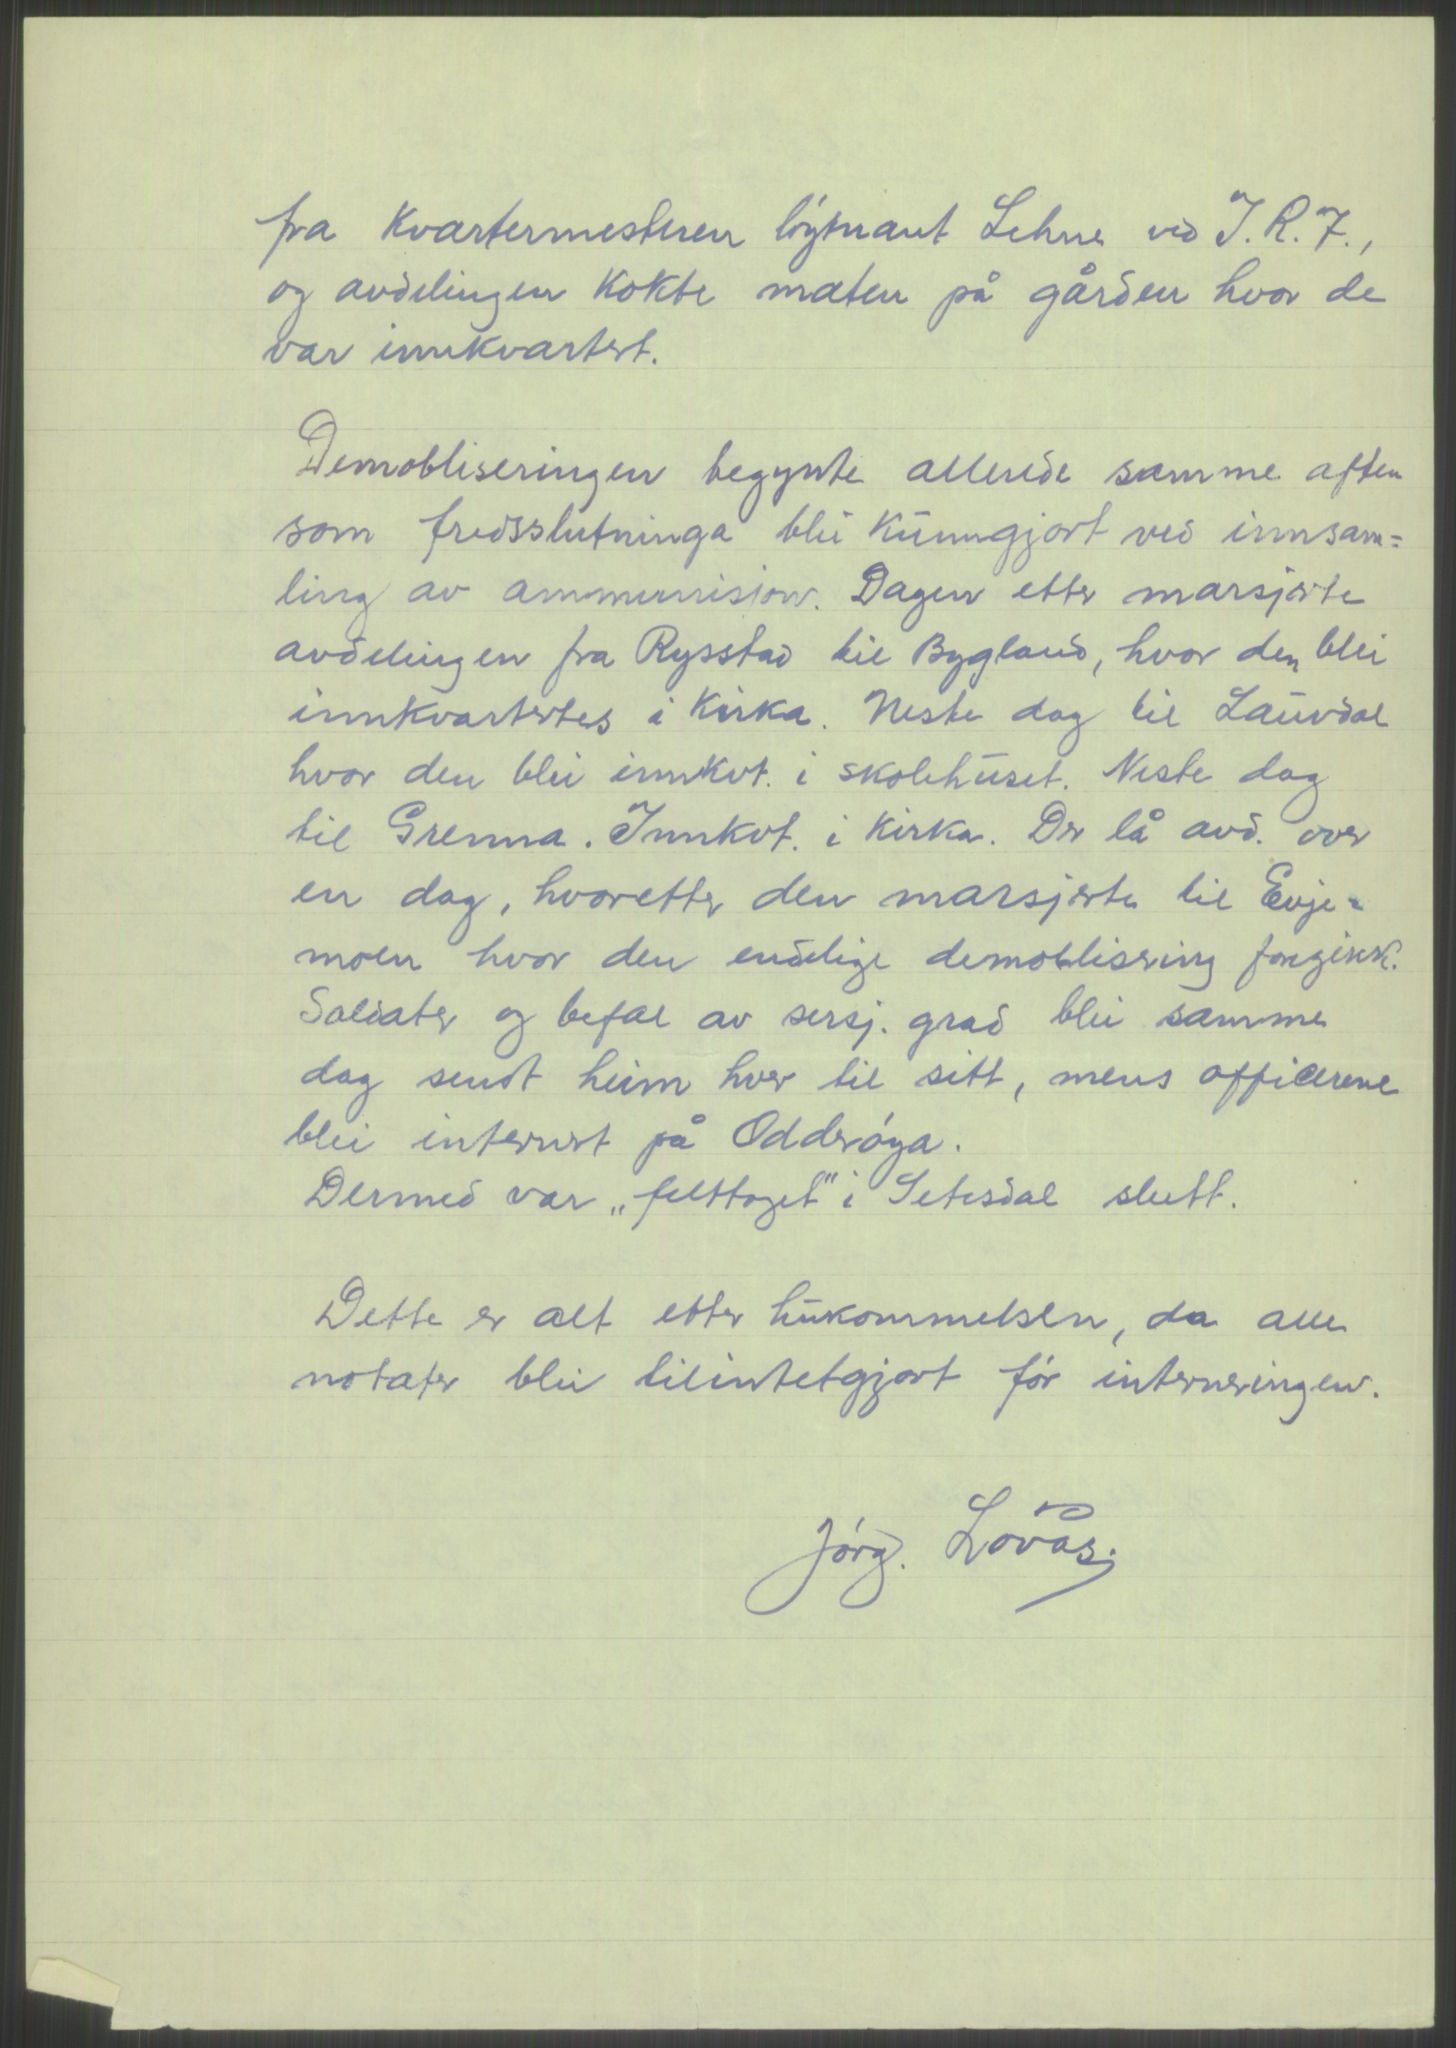 fra kvartermesteren løytnant Lehne ved I.R.7.,
og avdelingen kokte maten på gården hvor de
var innkvartert.
Demobliseringen begynte allerede samme aften
som fredsslutninga blei kunngjort ved innsam=
ling av ammunisjon. Dagen etter marsjerte
avdelingen fra Rysstad til Bygland, hvor den blei
innkvartertes i kirka. Neste dag til Lauvdal
hvor den blei innkvt. i skolehuset. Neste dag
til Grenna. Innkvt. i kirka. Der lå avd. over
en dag, hvoretter den marsjerte til Evje=
moen hvor den endelige demoblisering foregikk.
Soldater og befal av sersj. grad blei samme
dag sendt heim hver til sitt, mens officerene
blei internert på Odderøya.
Dermed var „felttoget" i Setesdal slutt.
Dette er alt etter hukommelsen, da alle
notater blei tilintetgjort før interneringen.
Jørg. Løvås.